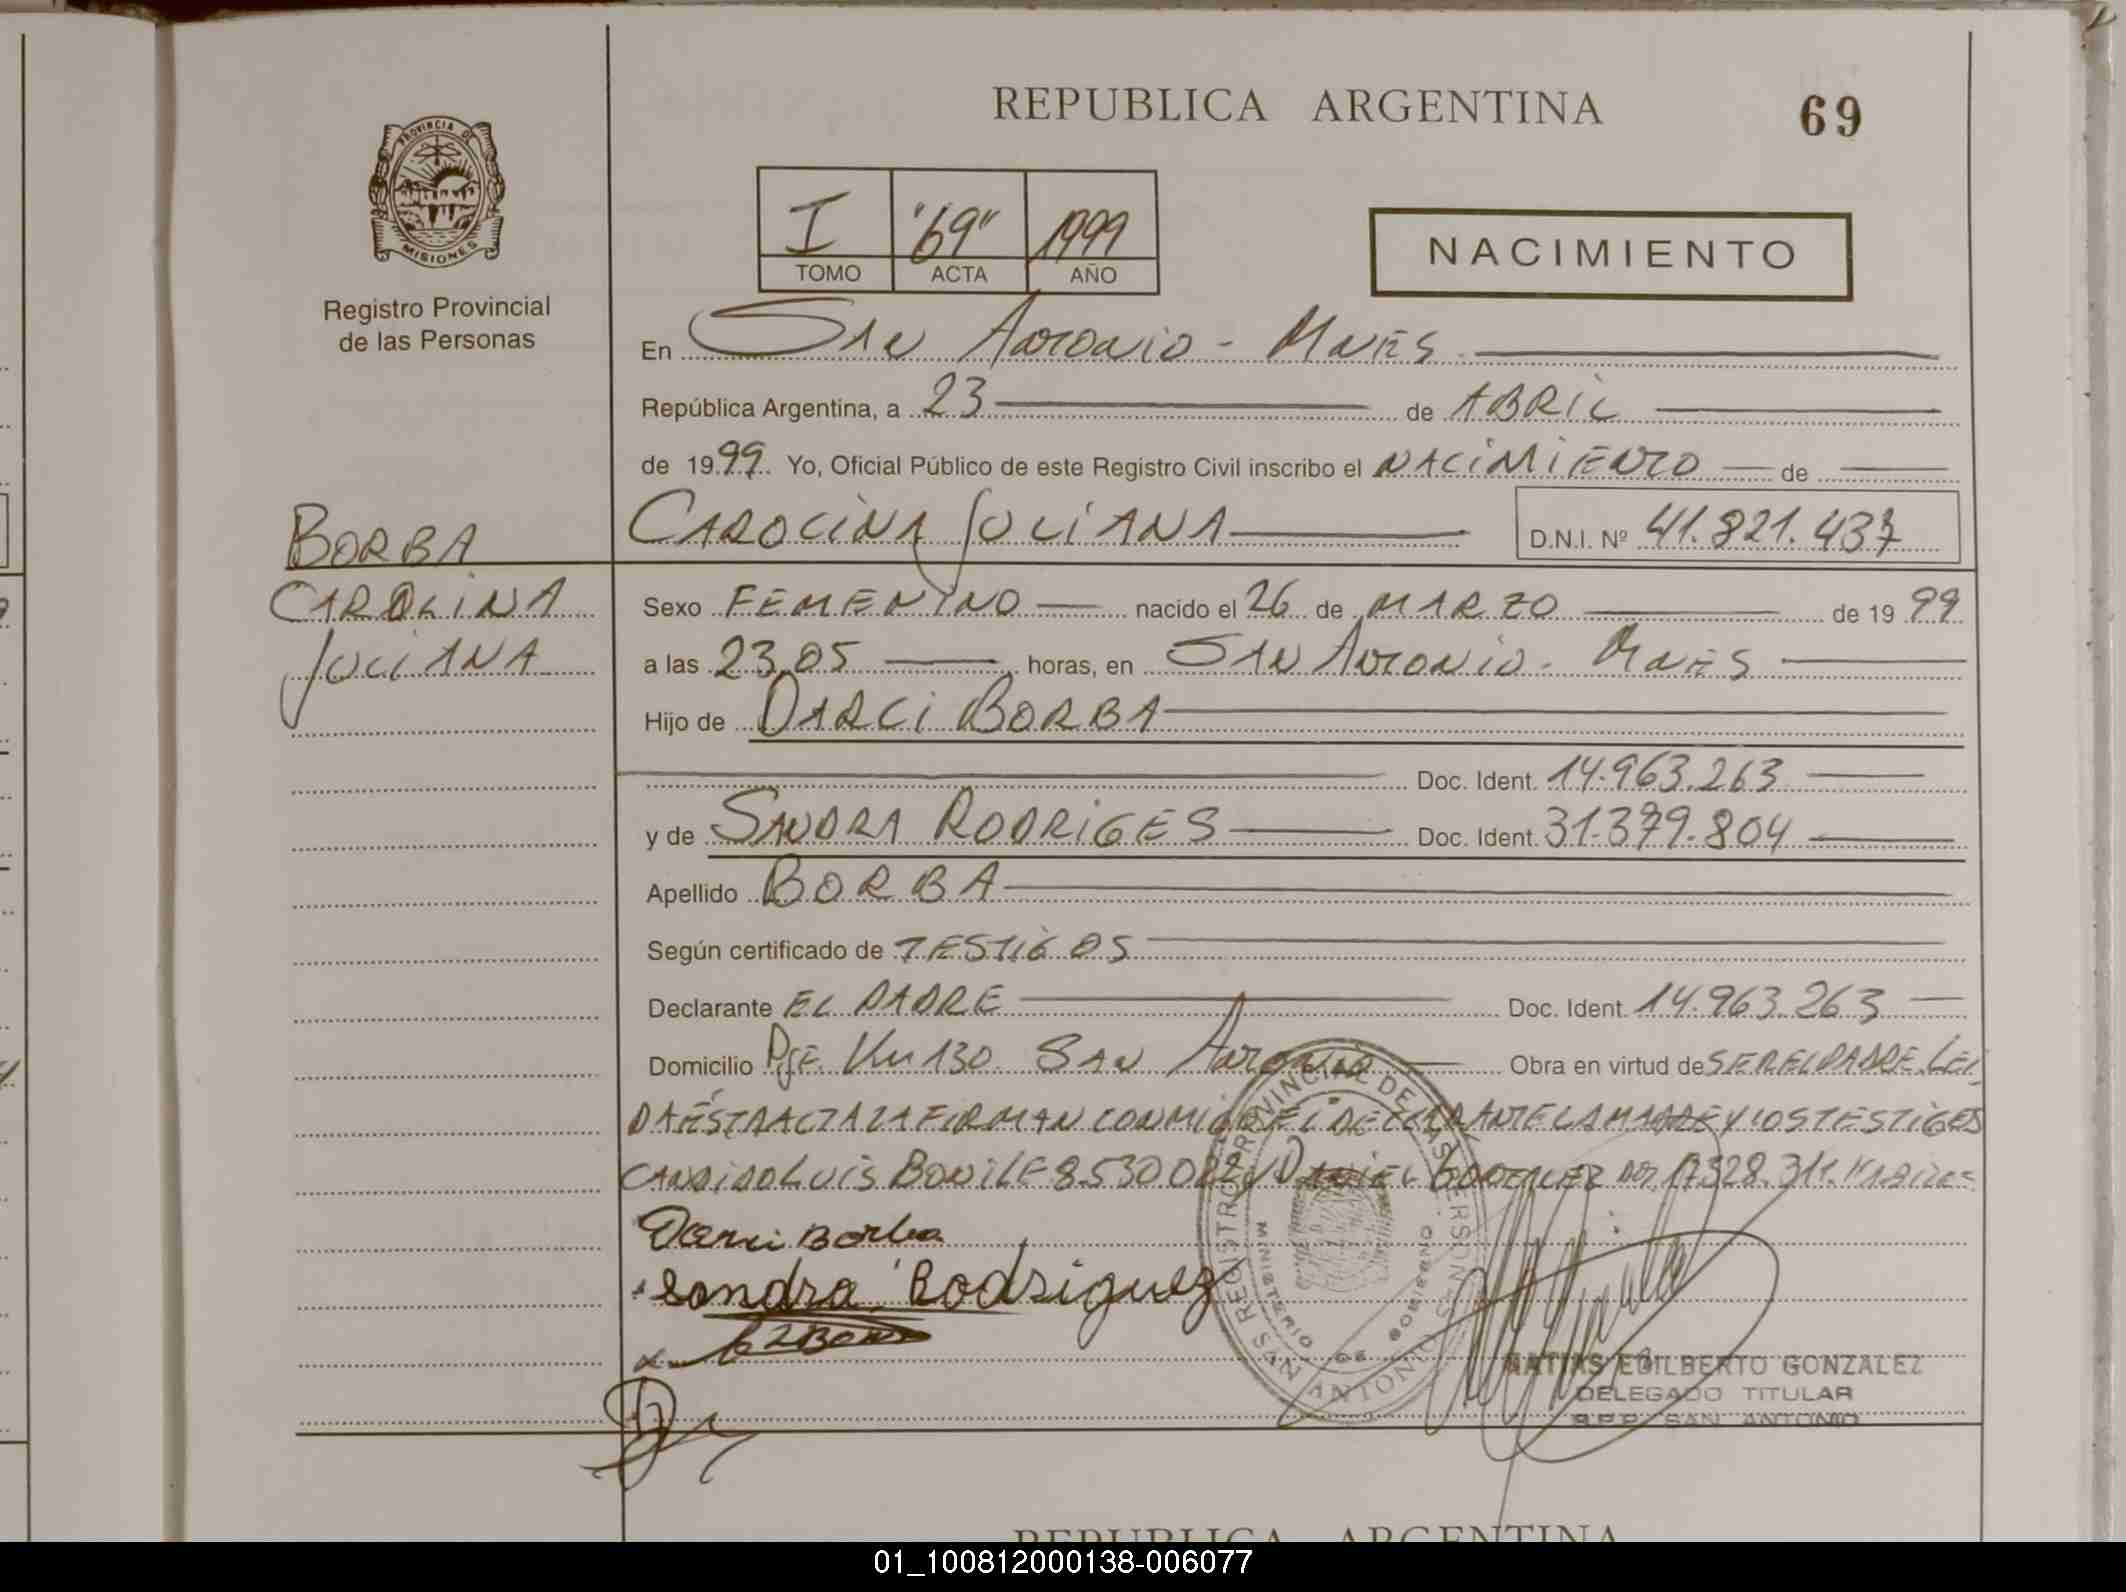 REPUBLICA ARGENTINA
69
PROVINCIA DE MISIONES
Registro Provincial
de las Personas
I "69" 1999
TOMO ACTA AÑO
NACIMIENTO
En San Antonio - Mnes
República Argentina, a 23 de ABRIL
de 1999. Yo, Oficial Público de este Registro Civil inscribo el NACIMIENTO de
BORBA
CAROLINA JULIANA D.N.I. Nº 41.821.437
CAROLINA
JULIANA
Sexo FEMENINO nacido el 26 de MARZO de 1999
a las 23,05 horas, en San Antonio - Mnes
Hijo de DARCI BORBA
Doc. Ident. 14.963.263
y de SANDRA RODRIGES Doc. Ident. 31.379.804
Apellido BORBA
Según certificado de TESTIGOS
Declarante EL PADRE Doc. Ident. 14.963.263
Domicilio Pje. Km 130 San Antonio Obra en virtud de SER EL PADRE. LEI
DA ÉSTA ACTA LA FIRMAN CONMIGO EL DECLARANTE LA MADRE Y LOS TESTIGOS
CANDIDO LUIS 8.530.022 Y DANIEL GONZALEZ 17.328.311.
Darci Borba
Sandra Rodriguez
REGISTRO PROVINCIAL DE LAS PERSONAS
MINISTERIO DE GOBIERNO
SAN ANTONIO
MATIAS EDILBERTO GONZALEZ
DELEGADO TITULAR
R.P.P. SAN ANTONIO
REPUBLICA ARGENTINA
01_100812000138-006077